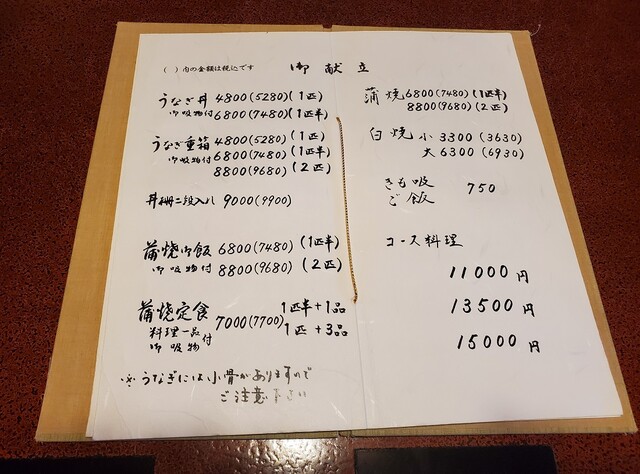 御献立
( )内の金額は税込です
うなぎ丼 4800(5280)(1匹)
御吸物付 6800(7480)(1匹半)
うなぎ重箱 4800(5280)(1匹)
御吸物付 6800(7480)(1匹半)
8800(9680)(2匹)
丼冊二段入り 9000(9900)
蒲焼御飯 6800(7480)(1匹半)
御吸物付 8800(9680)(2匹)
蒲焼定食 7000(7700) 1匹半+1品
料理一品 御吸物付 1匹+3品
※うなぎには小骨がありますので
ご注意下さい
蒲焼 6800(7480)(1匹半)
8800(9680)(2匹)
白焼 小 3300(3630)
大 6300(6930)
きも吸
ご飯 750
コース料理
11000円
13500円
15000円